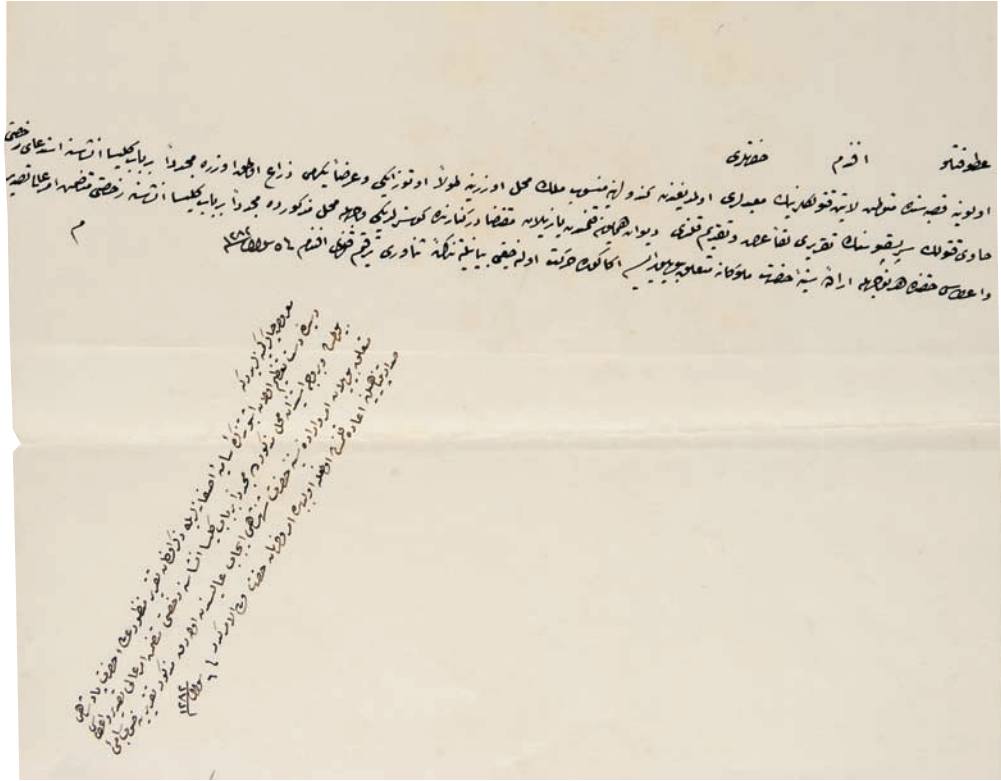 عطوفتلو افندم حضرتلری
اولونیه قصبه‌سنده متوطن لاتین قتولكلرینك معبدلری اولمدیغندن كندولرینه منسوب ملك محل اوزرینه طولاً اوتوز ایكی وعرضاً یكرمی ذراع اولمق اوزره مجدداً بر باب كلیسا انشاسنه استدعای رخصتی
حاوی قتولك سرپسقپوسنك تقریری لفاً عرض وتقدیم قلندی دیوان همایون قلمندن یازیلان مقتضا دركنارنده كوستریلدیكی وجهله محل مذكورده مجدداً بر باب كلیسا انشاسنه رخصتی متضمن امر عالی تصدیر
واعطاسی حقنده هر نه وجهله اراده سنیه حضرت ملوكانه متعلق بیوریلور ایسه اكا كوره حركت اولنه‌جغی بیانیله تذكره ثناوری ترقیم قلندی افندم ٥ سنه ١٢٨٢
م
معروض چاكر كمینه‌لریدر كه
رسیده دست تعظیم اولان اشبو تذكره سامیه اصفانه‌لریله ذكر اولنان تقریر منظور عالی حضرت پادشاهی
بیورلمش وبر وجه استیذان محل مذكورده مجدداً بر باب كلیسا انشاسنه رخصتی متضمن امر عالی تصدیر واعطاسی
متعلق بیوریلان امر واراده سنیه حضرت شهنشاهی ایجاب عالیسندن اولهرق مذكور تقریر ینه صوب سامی
صدارتپناهیلرینه اعاده قلنمش اولمغله اولبابده امر وفرمان حضرت ولی الامركدر ٦ سنه ١٢٨٢
م